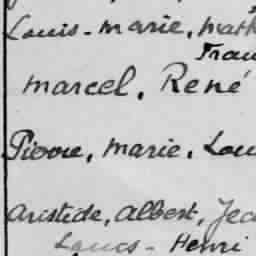 Louis-Marie, Math
Marcel, René
Pierre, Marie, Lou
Aristide, Albert, Jea
Henri